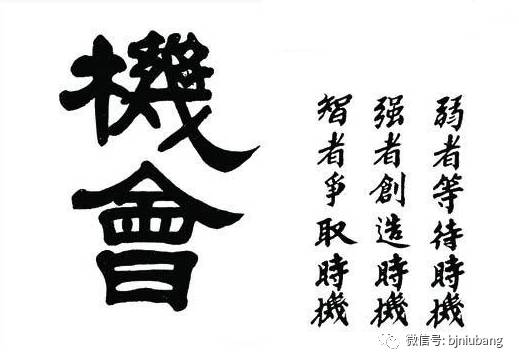 機會
弱者等待時機
强者創造時機
智者爭取時機
微信号: bjniubang